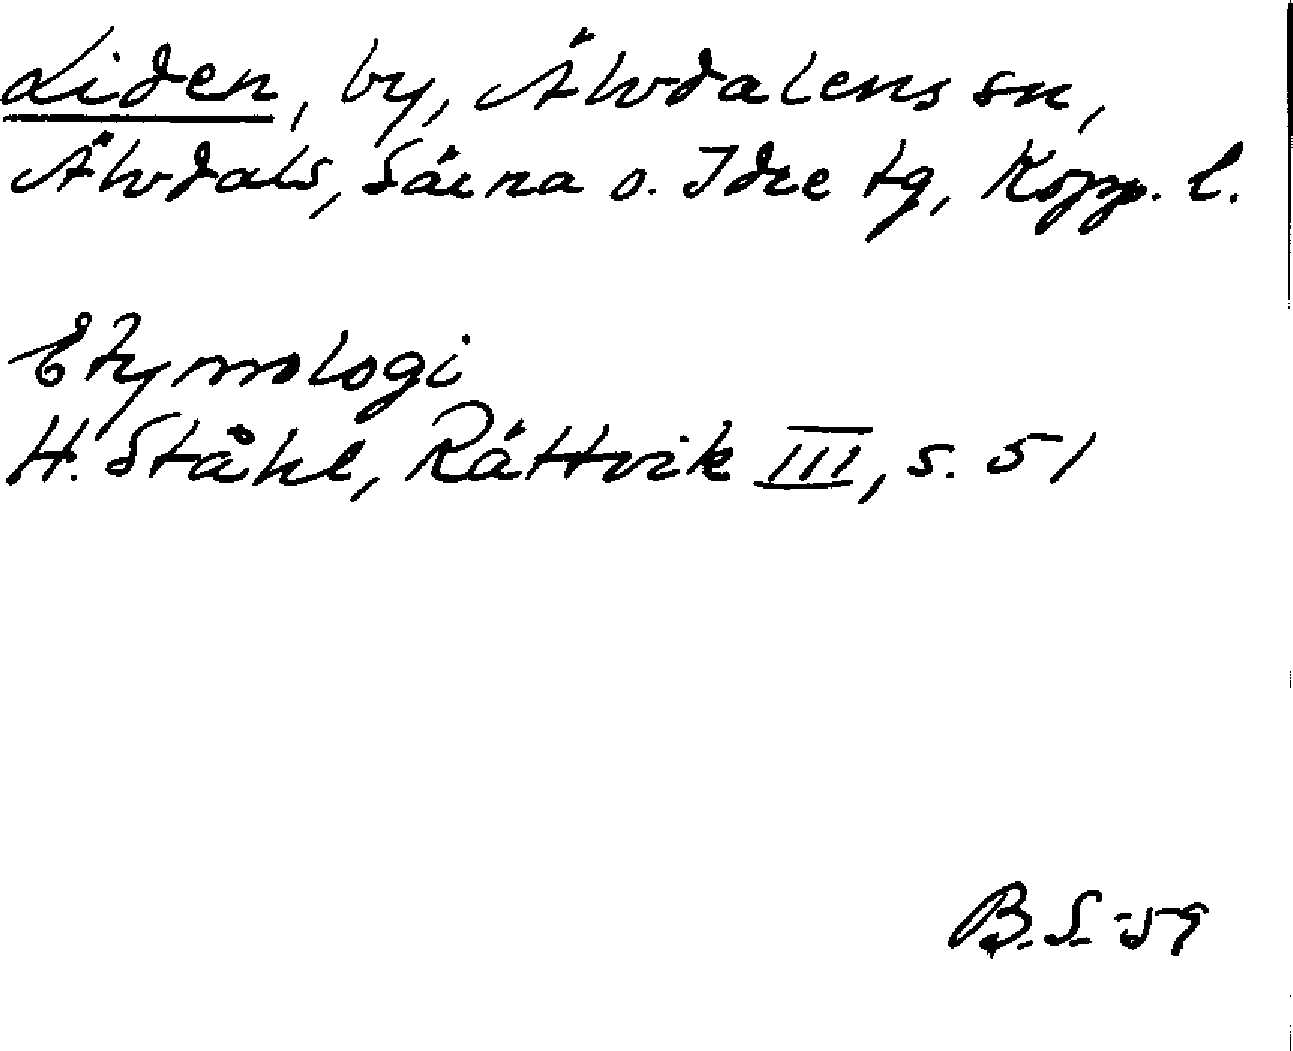 Liden, by, Älvdalens sn,
Älvdals, Särna o. Idre tg, Kopp. l.
Etymologi
H. Ståhl, Rättvik III, s. 51
B.S. -59